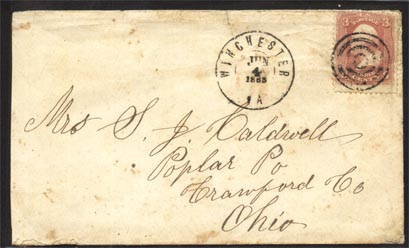 3 3
WINCHESTER
JUN
4
1865
VA
Mrs S. J. Caldwell
Poplar Po
Crawford Co
Ohio